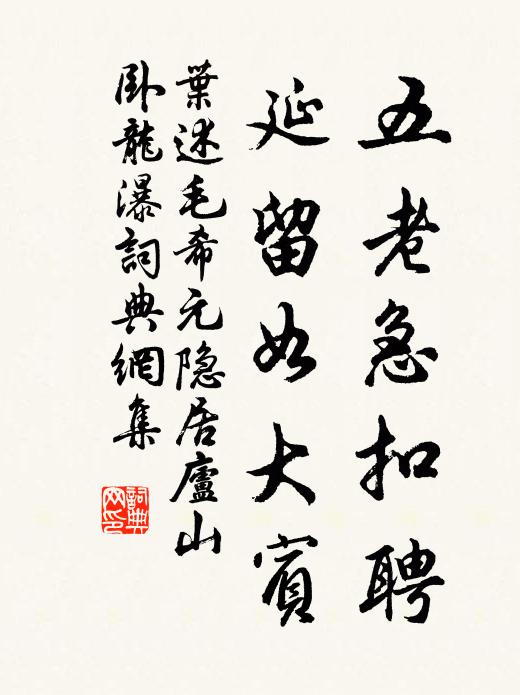 五老急扣聘
延留如大賓
葉迷毛希元隐居廬山
卧龍瀑詞典網集
詞典网印